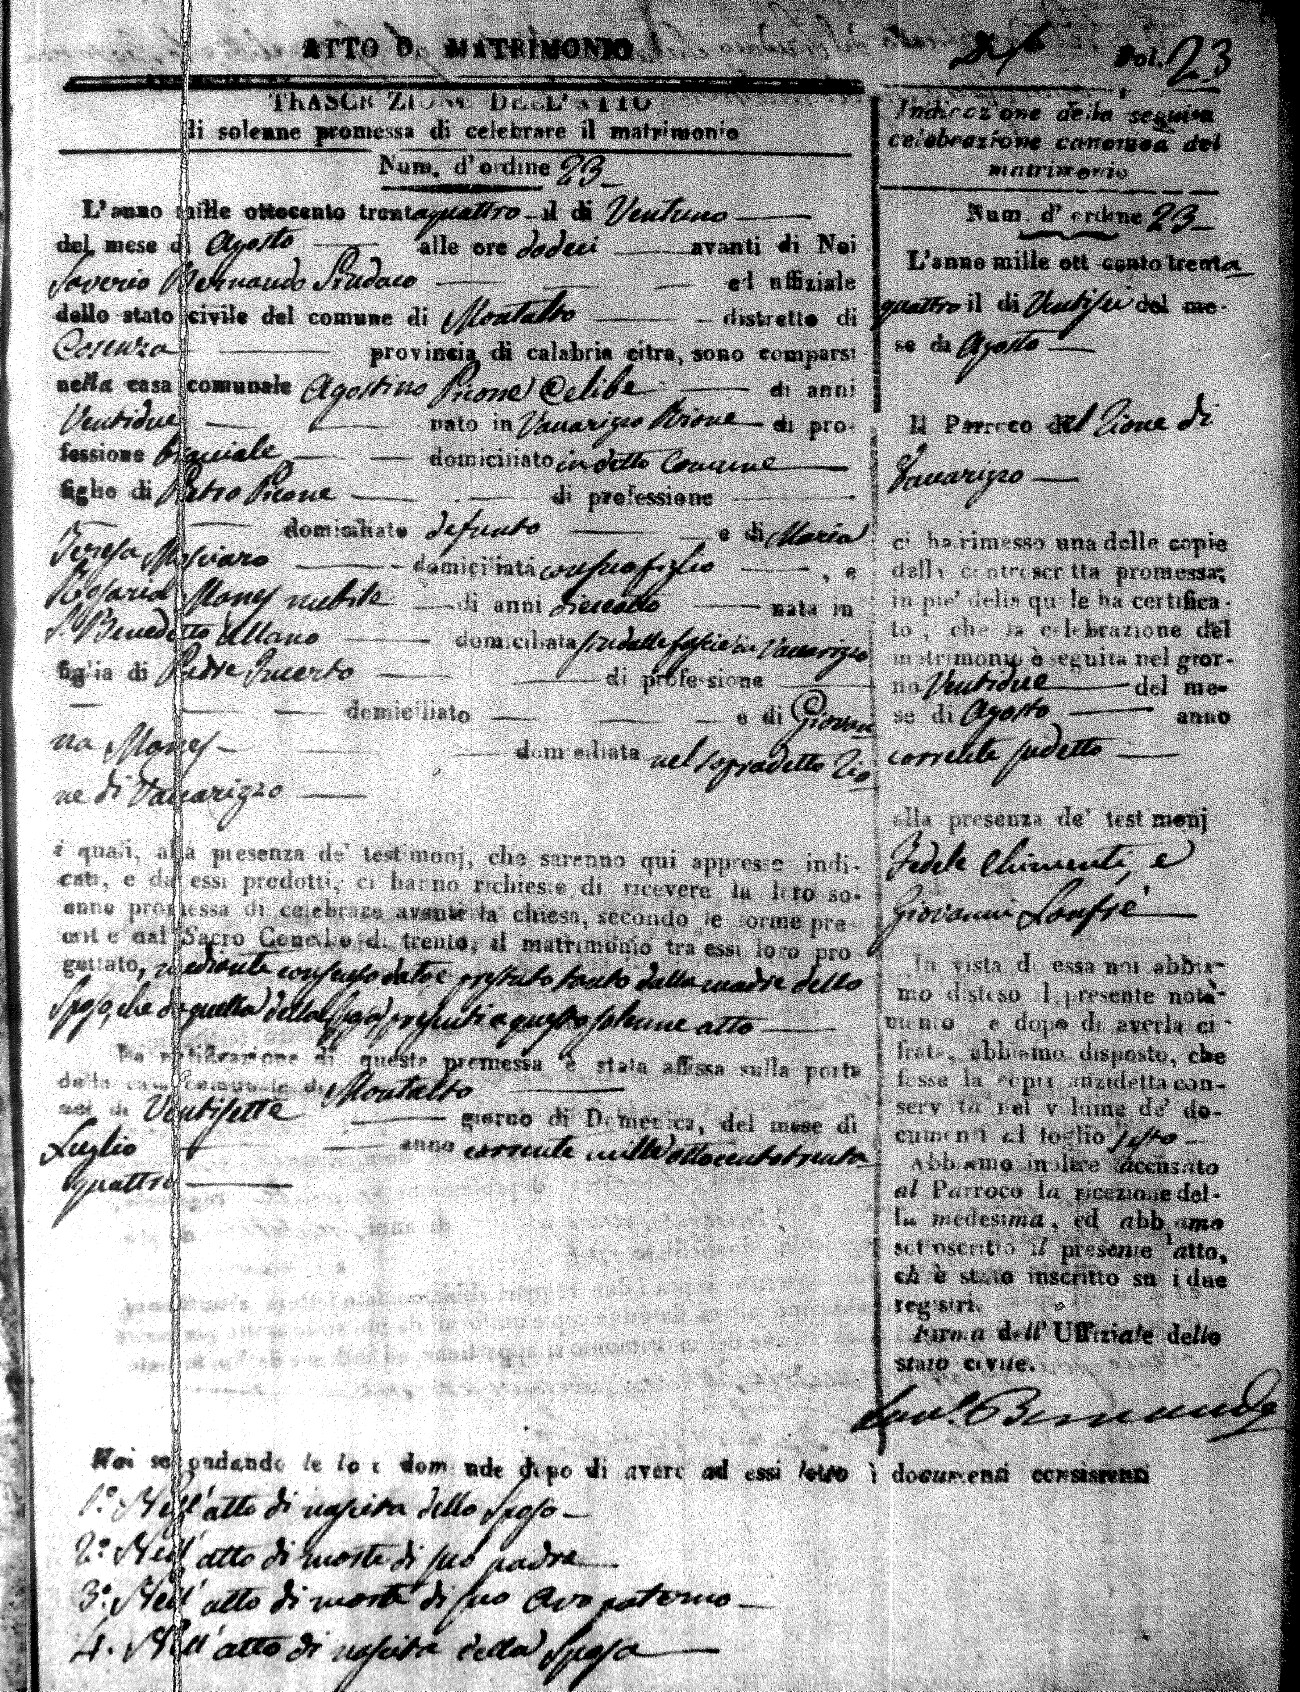 ATTO DI MATRIMONIO
Fol. 23
TRASCRIZIONE DELL'ATTO
di solenne promessa di celebrare il matrimonio
Num. d'ordine 23
L'anno mille ottocento trentaquattro il dì Ventuno
del mese di Agosto alle ore dodeci avanti di Noi
Saverio Bernaudo Sindaco ed uffiziale
dello stato civile del comune di Montalto distretto di
Cosenza provincia di calabria citra, sono comparsi
nella casa comunale Agostino Picone Celibe di anni
Ventidue nato in Vaccarizzo Rione di pro-
fessione Bracciale domiciliato in detto Comune
figlio di Pietro Picone di professione
domiciliato defunto e di Maria
Teresa domiciliata con suo figlio , e
Rosaria Mones nubile di anni dieciotto nata in
S. Benedetto Ullano domiciliata in Vaccarizzo
figlia di Padre Incerto di professione
domiciliato e di Giovan
na Mones domiciliata nel sopradetto Rio
ne di Vaccarizzo
i quali, alla presenza de' testimonj, che saranno qui appresso indi-
cati, e da essi prodotti, ci hanno richiesto di ricevere la loro so-
enne promessa di celebrare avante la chiesa, secondo le forme pre
critte dal Sacro Concilio di trento, il matrimonio tra essi loro pro
gettato, mediante consenso dato e prestato tanto dalla madre dello
Sposo, che da quella della Sposa presenti a questo solenne atto
La notificazione di questa promessa è stata affissa sulla porta
della casa comunale di Montalto
nel dì Ventisette giorno di Domenica, del mese di
Luglio anno corrente mille ottocento trenta
quattro
Indicazione della seguita
celebrazione canonica del
matrimonio
Num. d'ordine 23
L'anno mille ottocento trenta
quattro il dì Ventisei del me-
se di Agosto
Il Parroco del Rione di
Vaccarizzo
ci ha rimesso una delle copie
della controscritta promessa;
in piè della quale ha certifica-
to, che la celebrazione del
matrimonio è seguita nel gior-
no Ventidue del me-
se di Agosto anno
corrente sudetto
alla presenza de' testimonj
Fedele Chimenti, e
Giovanni Lonfré
In vista di essa noi abbia-
mo disteso il presente nota-
mento, e dopo di averla ci-
frata, abbiamo disposto, che
fosse la copia anzidetta con-
servata nel volume de' do-
cumenti al foglio sesto
Abbiamo inoltre accusato
al Parroco la ricezione del-
la medesima, ed abbiamo
sottoscritto il presente atto,
ch'è stato inscritto su i due
registri.
Firma dell'Uffiziale dello
stato civile.
Sav. Bernaudo
Noi secondando le loro domande dopo di avere ad essi letto i documenti consistenti
1.º Nell'atto di nascita dello Sposo
2.º Nell'atto di morte di suo padre
3.º Nell'atto di morte di suo avo paterno
4. Nell'atto di nascita della Sposa